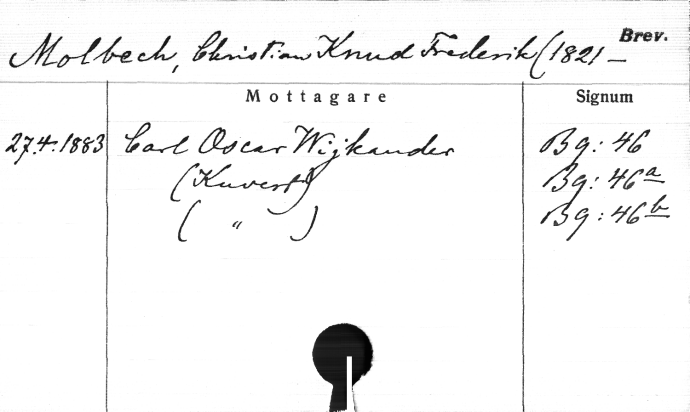 Molbech, Christian Knud Frederik (1821 – Brev.
Mottagare Signum
27.4.1883 Carl Oscar Wijkander Bg: 46
(Kuvert) Bg: 46a
( " ) Bg: 46b